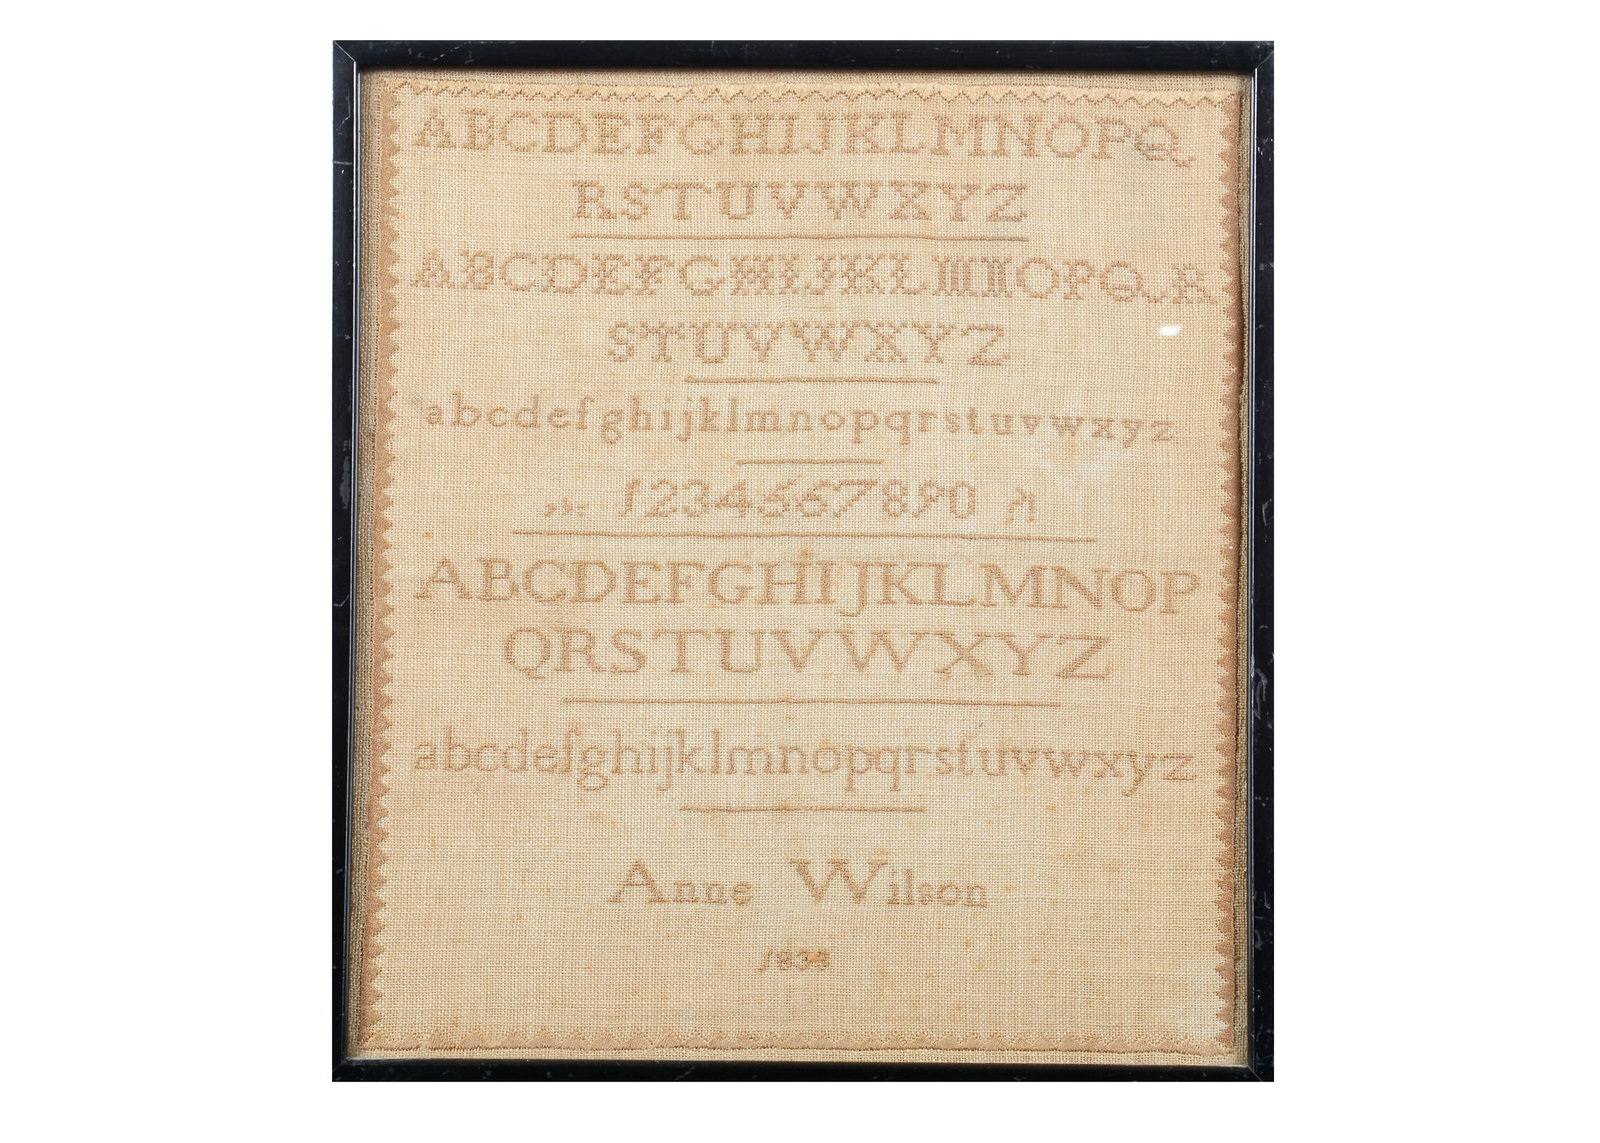 ABCDEFGHIJKLMNOPQ
RSTUVWXYZ
ABCDEFGHIJKLMNOPQR
STUVWXYZ
abcdefghijklmnopqrstuvwxyz
1234567890
ABCDEFGHIJKLMNOP
QRSTUVWXYZ
abcdefghijklmnopqrstuvwxyz
Anne Wilson